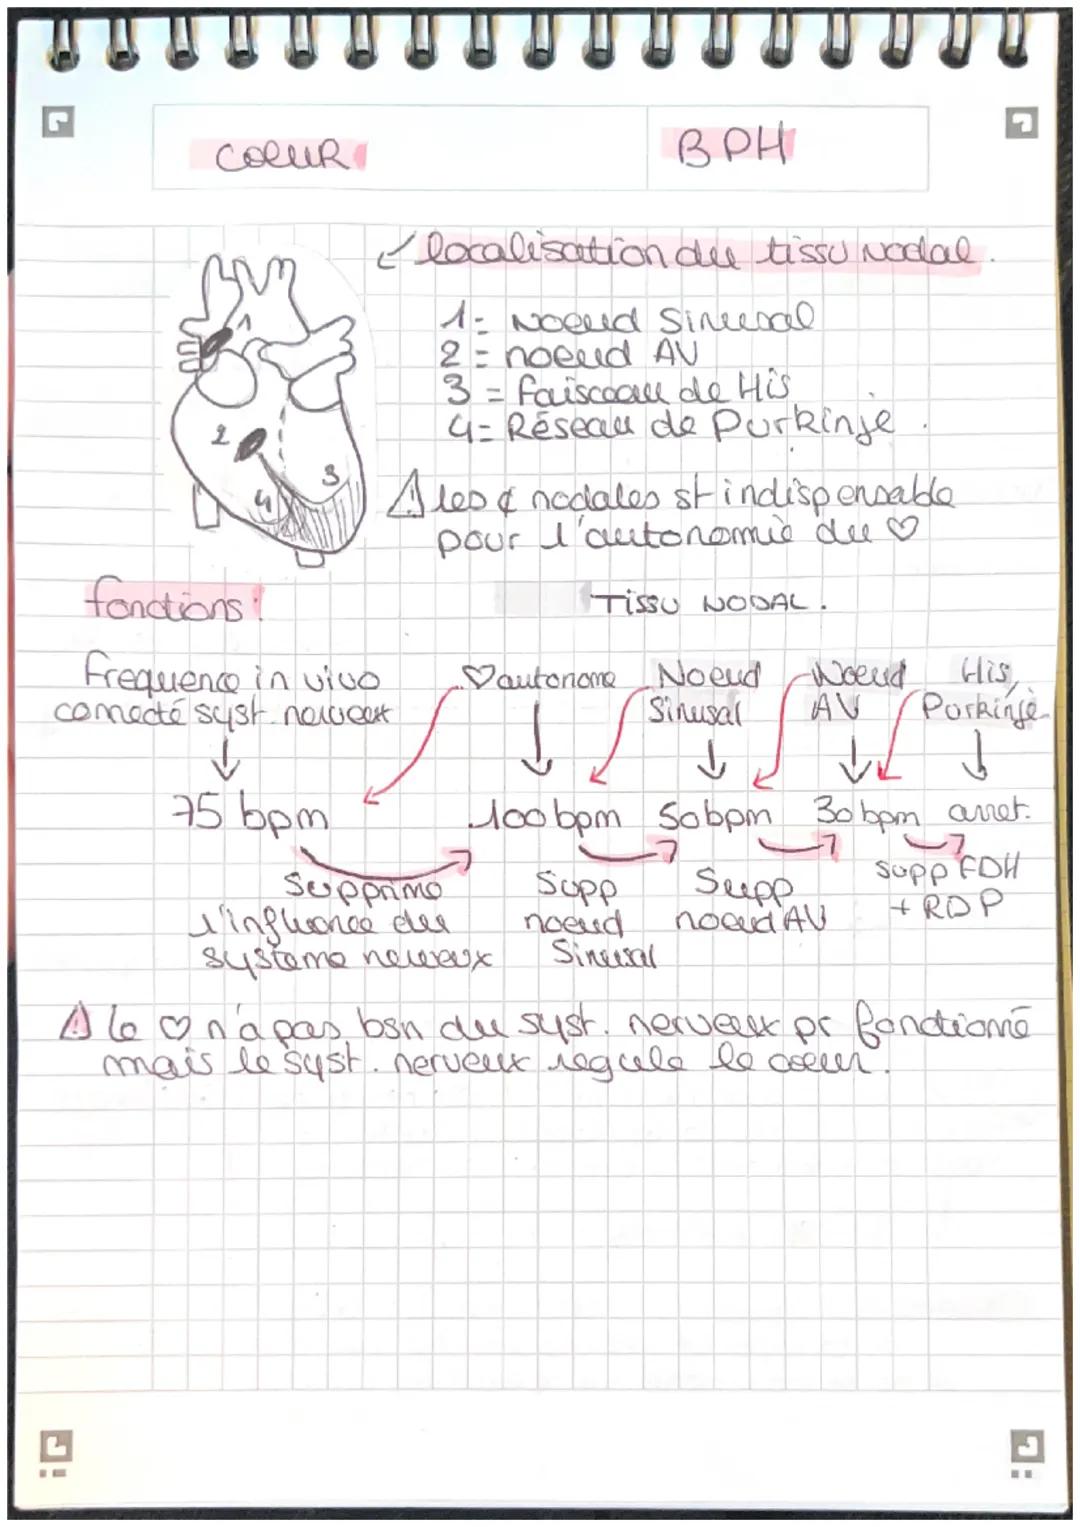 coeur
BPH
localisation du tissu nodal.
1= Noeud Sinusal
2 = noeud AV
3 = faisceau de His
4= Réseau de Purkinje.
1
2
3
4
⚠ les ¢ nodales st indispensable
pour l'autonomie du ♡
fonctions:
TISSU NODAL.
frequence in vivo
connecté syst. nerveux
♡autonome
Noeud
Sinusal
Noeud
AV
His,
Purkinje
75 bpm
100 bpm
50bpm
30 bpm
arret.
Supprime
l'influence du
système nerveux
Supp
noeud
Sinusal
Supp
noeud AV
supp FDH
+ RDP
⚠ le ♡ n'a pas bsn du syst. nerveux pr fonctionné
mais le syst. nerveux regule le coeur.